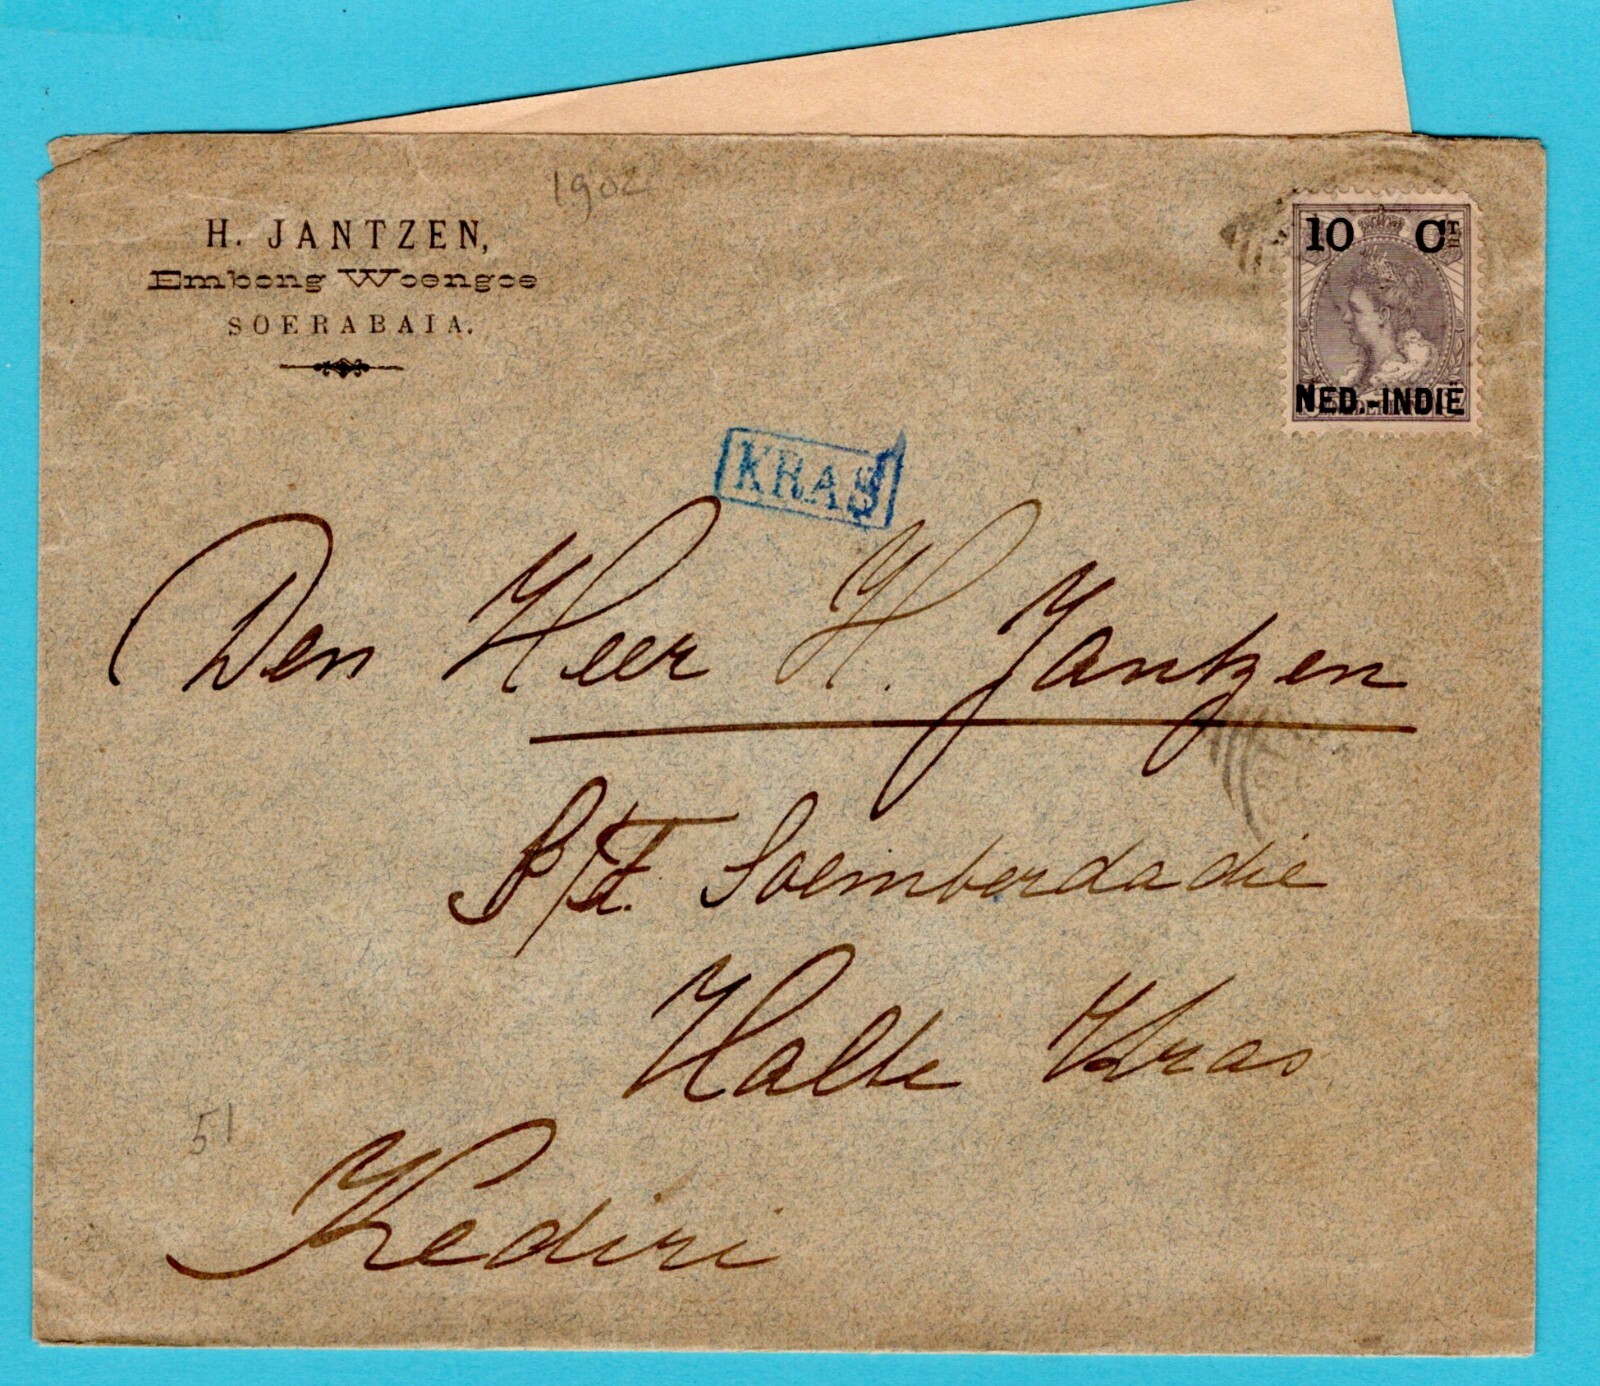 1902
H. JANTZEN,
Embong Woengoe
SOERABAIA.
10 CT
NED.-INDIË
KRAS
Den Heer H. Jantzen
S/F. Soemberdadie
Halte Kras
51
Kediri